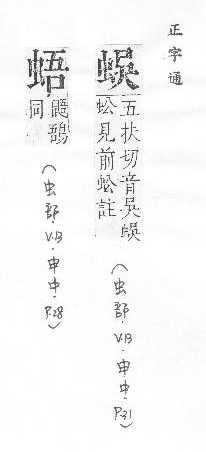 正字通
蜈
五扶切音吳蜈
蚣見前蚣註
(虫部.VB.申中.P31)
鼯
同
(虫部.VB.申中.P28)